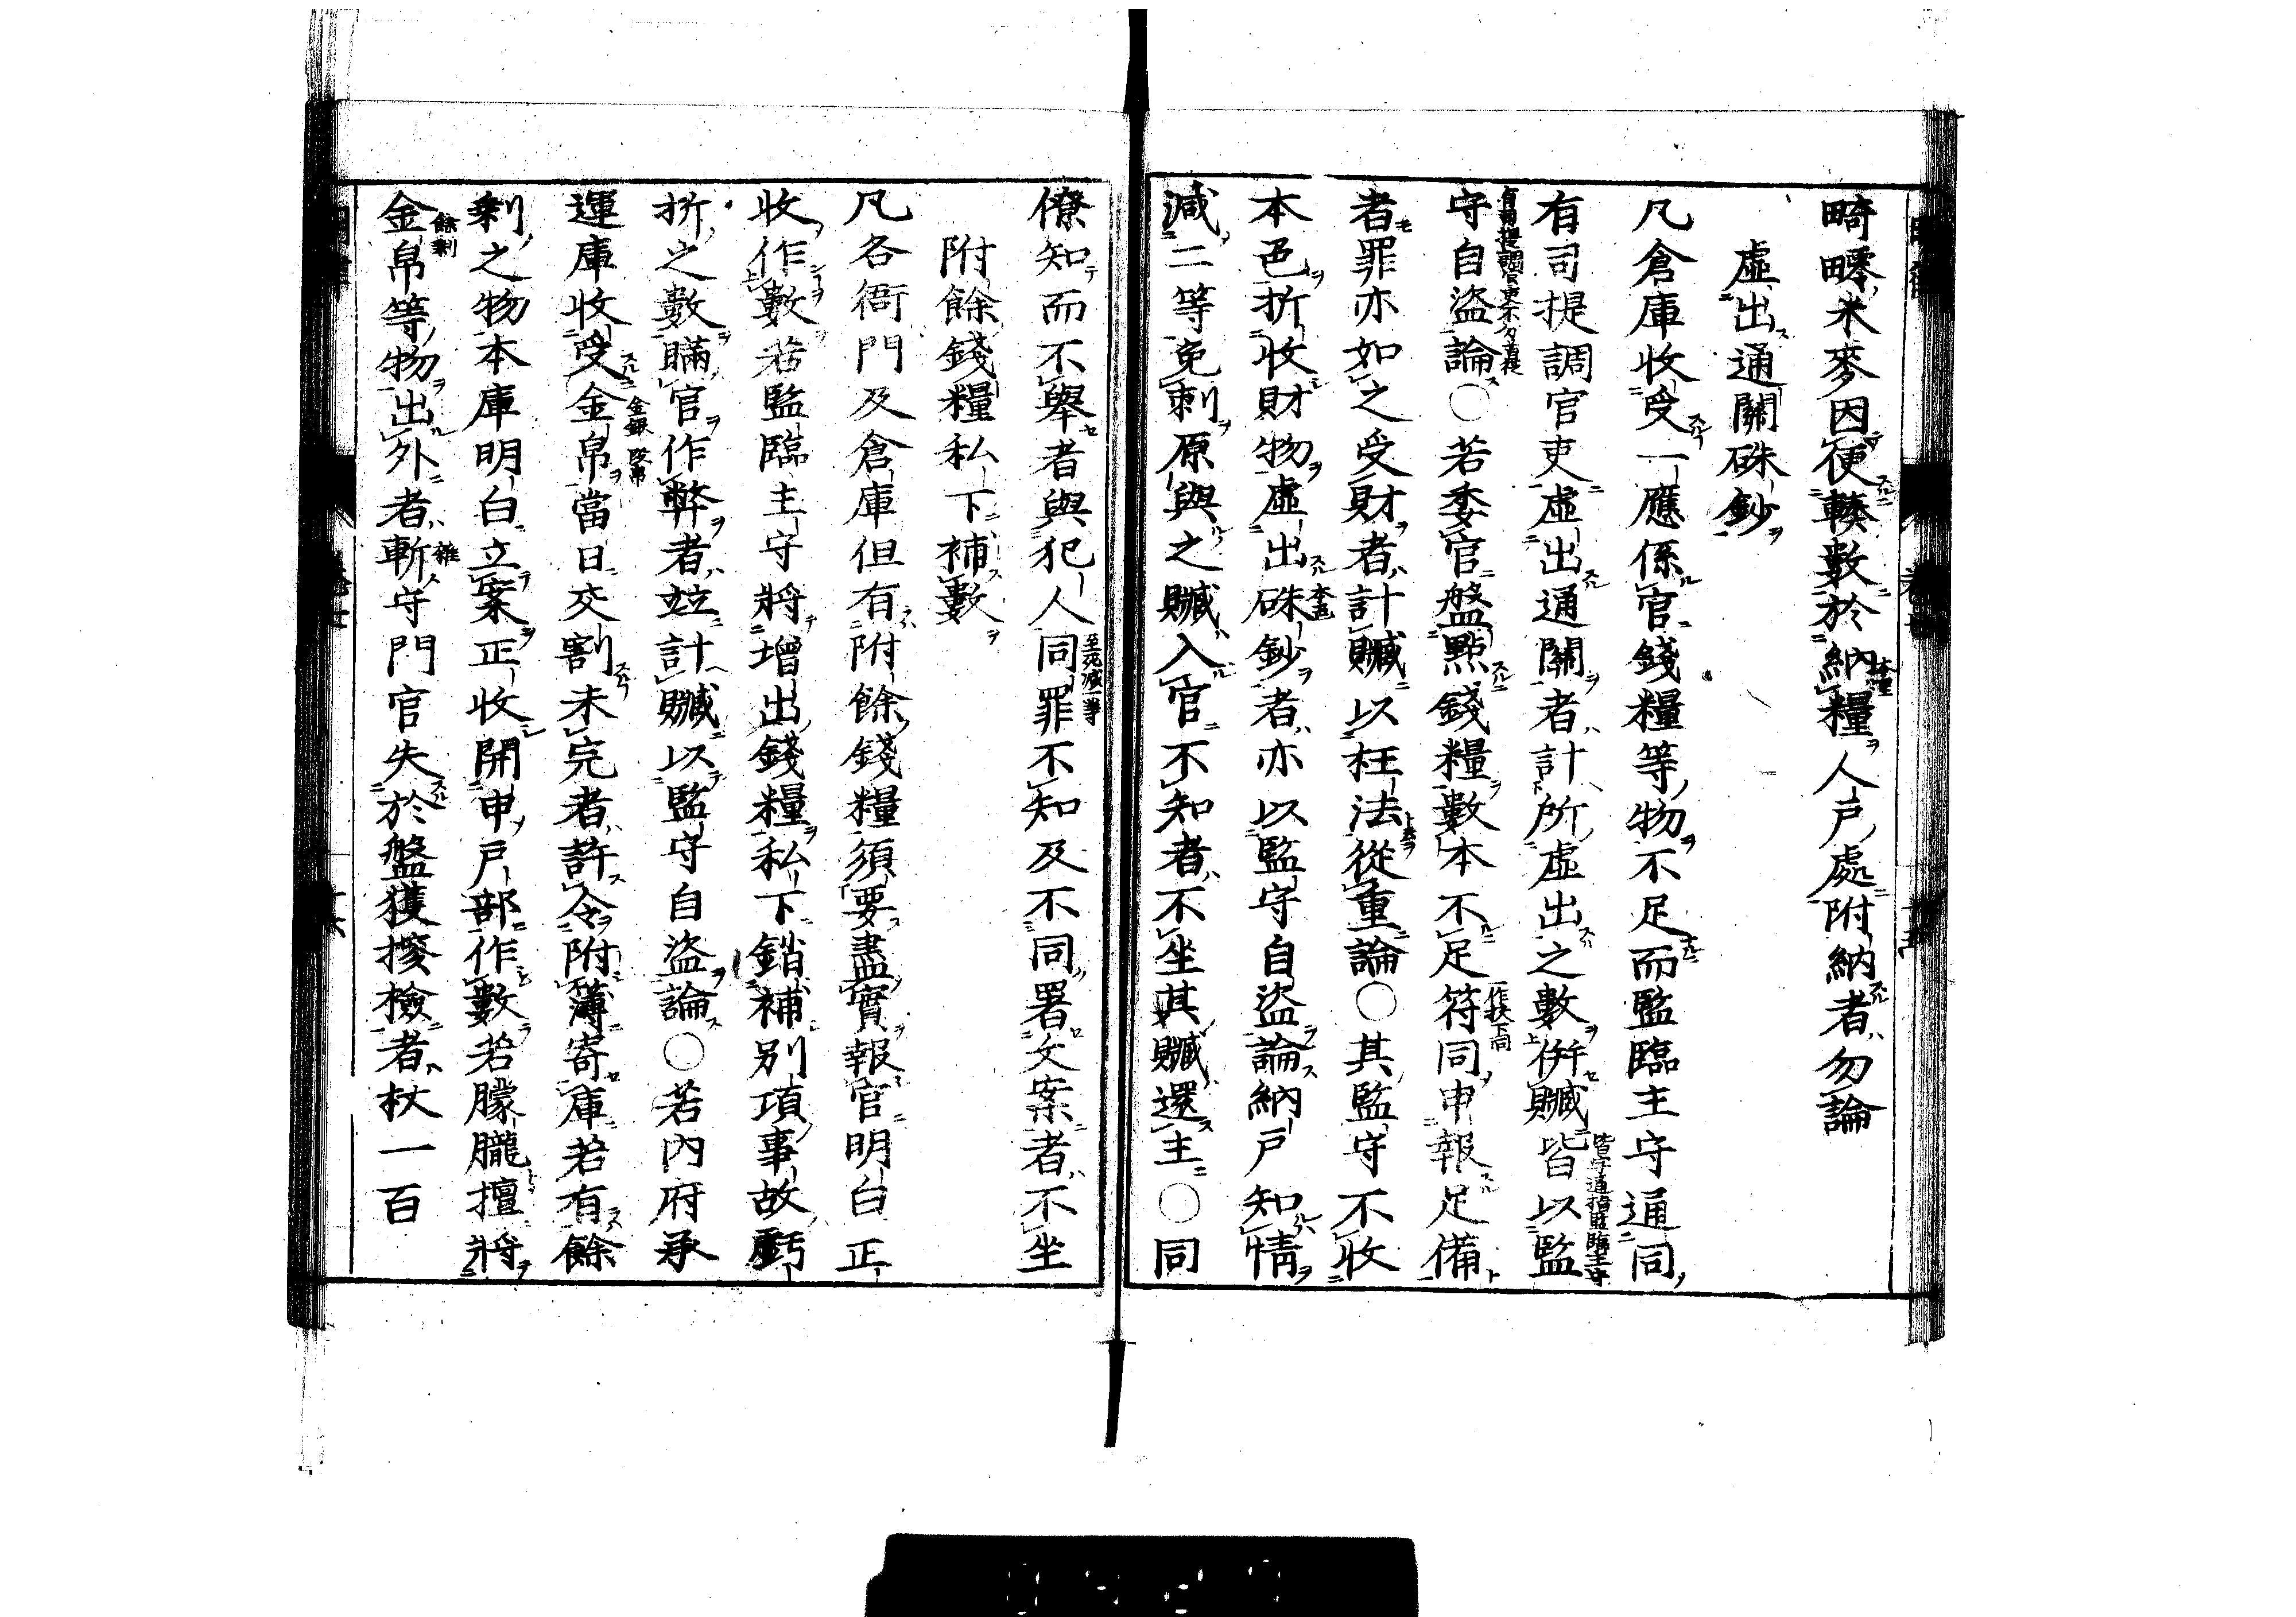 畸零米麥因便輳數於納糧人戶處附納者勿論
虛出通關硃鈔
凡倉庫收受一應係官錢糧等物不足而監臨主守通同
有司提調官吏虛出通關者計所虛出之數併贓皆以監
守自盜論○若委官盤點錢糧數本不足符同申報足備
者罪亦如之受財者計贓以枉法從重論○其監守不收
本色折收財物虛出硃鈔者亦以監守自盜論納戶知情
減二等免刺原與之贓入官不知者不坐其贓還主○同
僚知而不舉者與犯人同罪不知及不同署文案者不坐
附餘錢糧私下補數
凡各衙門及倉庫但有附餘錢糧須要盡實報官明白正
收作數若監臨主守將增出錢糧私下銷補別項事故虧
折之數瞞官作弊者竝計贓以監守自盜論○若內府承
運庫收受金帛當日交割未完者許令附簿寄庫若有餘
剩之物本庫明白立案正收開申戶部作數若朦朧擅將
金帛等物出外者斬守門官失於盤獲搜檢者杖一百